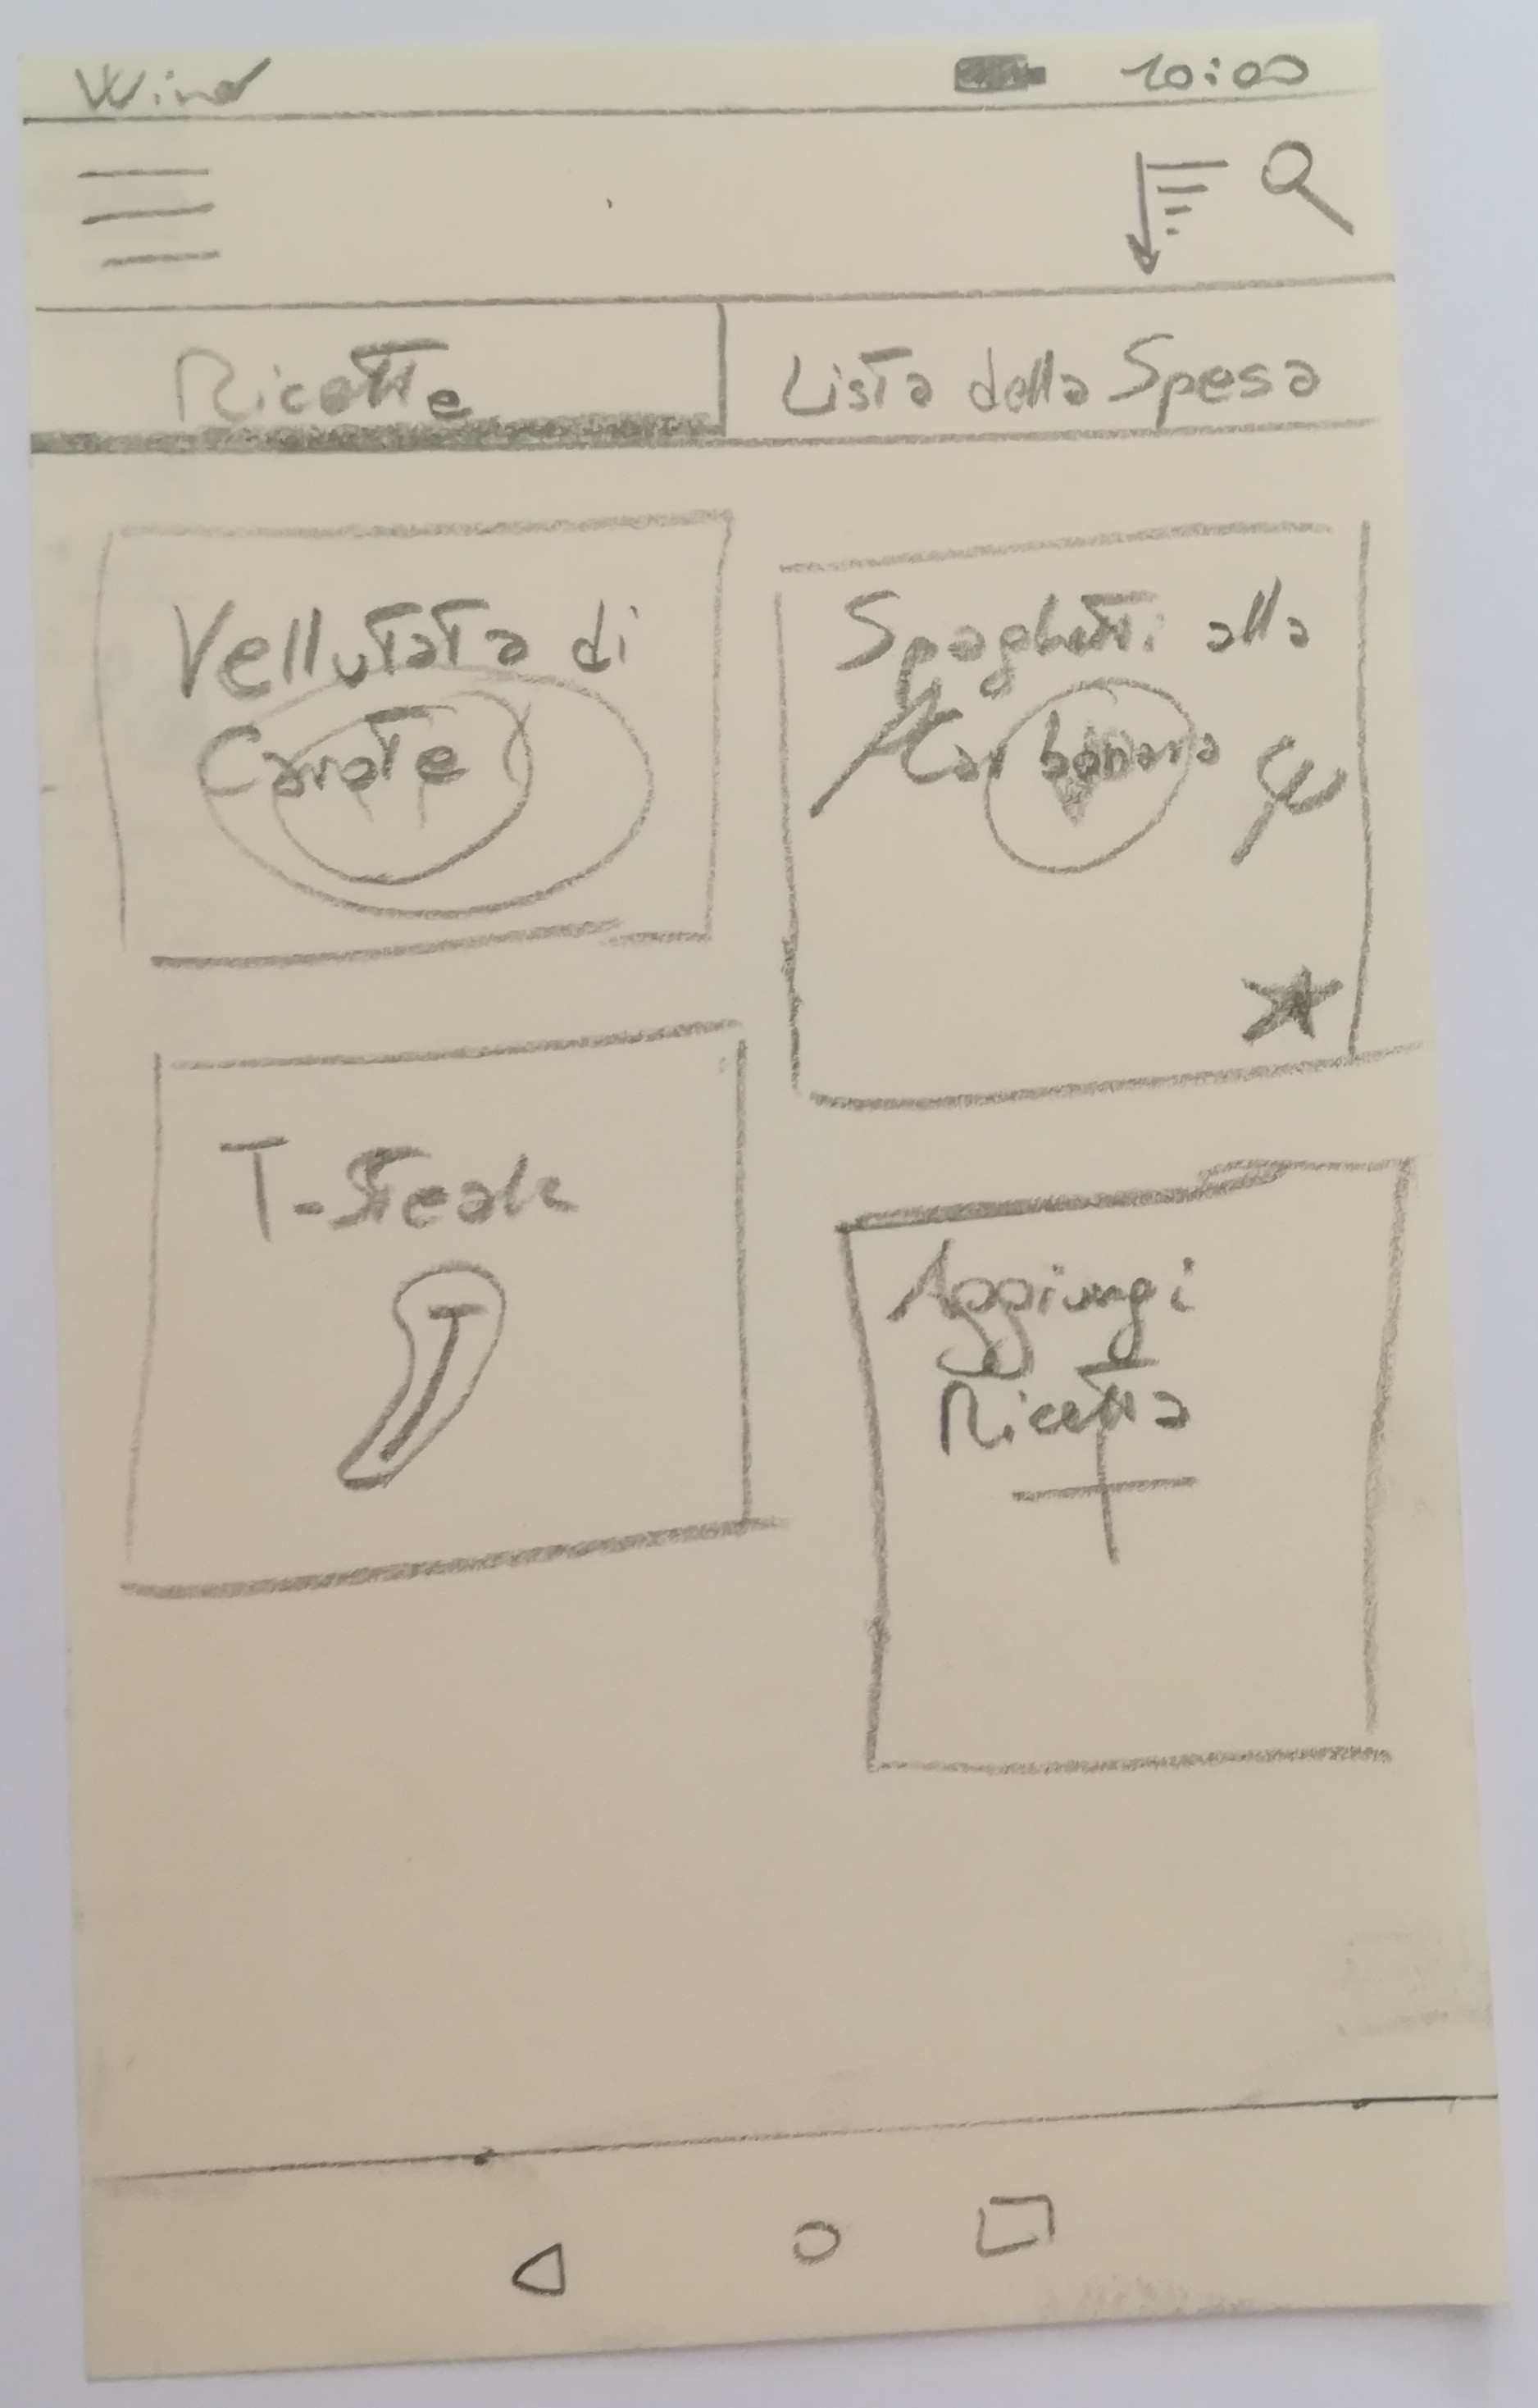 Wind 10:00
Ricette Lista della Spesa
Vellutata di
Carote
Spaghetti alla
Carbonara
T-Steak
Aggiungi
Ricetta